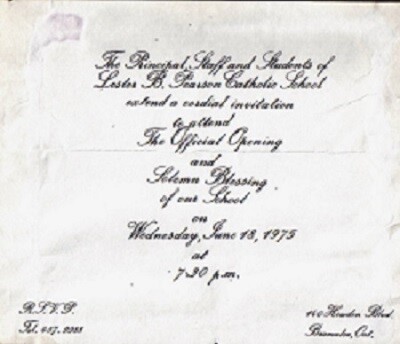 The Principal, Staff and Students of
Lester B. Pearson Catholic School
extend a cordial invitation
to attend
The Official Opening
and
Solemn Blessing
of our School
on
Wednesday, June 18, 1975
at
7:30 p.m.
R.S.V.P.
Tel.
140 Howden Blvd.
Bramalea, Ont.